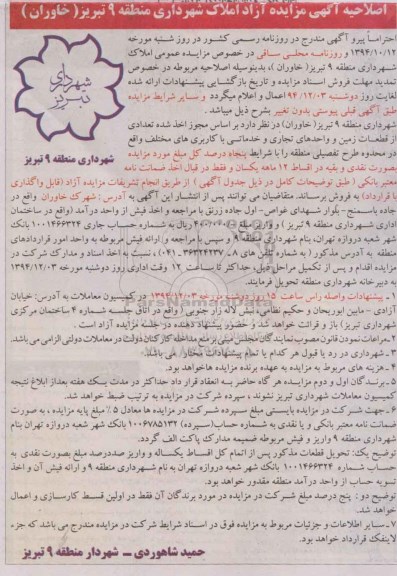 اصلاحیه آگهی مزایده آزاد املاک شهرداری منطقه ۹ تبریز( خاوران )
احتراماً پیرو آگهی مندرج در روزنامه رسمی کشور در روز شنبه مورخه
۱۳۹۴/۱۰/۱۲ و روزنامه محلی ساقی در خصوص مزایده عمومی املاک
شهرداری منطقه ۹ تبریز( خاوران )، بدینوسیله اصلاحیه مربوطه در خصوص
تمدید مهلت فروش اسناد مزایده و تاریخ بازگشایی پیشنهادات ارائه شده
لغایت روز دوشنبه ۹۴/۱۲/۰۳ اعمال و اعلام میگردد و سایر شرایط مزایده
طبق آگهی قبلی پیوستی بدون تغییر بشرح ذیل میباشد .
شهرداری منطقه ۹ تبریز( خاوران) در نظر دارد بر اساس مجوز اخذ شده تعدادی
از قطعات زمین و واحدهای تجاری و خدماتی با کاربری های مختلف واقع
در محدوده طرح تفصیلی منطقه را با شرایط پنجاه درصد کل مبلغ مورد مزایده
بصورت نقدی و بقیه در اقساط ۱۲ ماهه یکسان و فقط در قبال اخذ ضمانت نامه
معتبر بانکی ( طبق توضیحات کامل در ذیل جدول آگهی ) از طریق انجام تشریفات مزایده آزاد (قابل واگذاری
با قرارداد) به فروش برساند. متقاضیان می توانند پس از انتشار این آگهی به آدرس : شهرک خاوران واقع در
جاده باسمنج- بلوار شهدای غواص- اول جاده زرنق با مراجعه و اخذ فیش از واحد درآمد (واقع در ساختمان
اداری شهرداری منطقه ۹ تبریز ) و واریز مبلغ ریال به شماره حساب جاری ۱۰۰۱۴۶۶۳۲۴ بانک
شهر شعبه دروازه تهران، بنام شهرداری منطقه ۹ و سپس با مراجعه و ارائه فیش مربوطه به واحد امور قراردادهای
منطقه به آدرس مذکور ( به شماره تلفن های ۸- ۳۶۳۲۴۲۳۷ـ۰۴۱ ) ، نسبت به اخذ اسناد و مدارک شرکت در
مزایده اقدام و پس از تکمیل مراحل ذیل، حداکثر تا ساعت ۱۲ وقت اداری روز دوشنبه مورخه ۱۳۹۴/۱۲/۰۳
به دبیرخانه شهرداری منطقه تحویل فرمایند.
۱ – پیشنهادات واصله راس ساعت ۱۵ روز دوشنبه مورخه ۱۳۹۴/۱۲/۰۳ در کمیسیون معاملات به آدرس: خیابان
آزادی – مابین ابوریحان و حکیم نظامی، نبش لاله زار جنوبی ( واقع در اتاق جلسه شماره ۴ ساختمان مرکزی
شهرداری تبریز) باز و قرائت خواهد شد و حضور پیشنهاد دهنده در جلسه مزایده آزاد است .
۲–مراعات نمودن قانون مصوب نمایندگان مجلس مبنی بر منع مداخله کارکنان دولت در معاملات دولتی الزامی می باشد.
۳ – شهرداری در رد یا قبول هر کدام یا تمام پیشنهادات مختار می باشد.
۴ – هزینه های مربوط به مزایده به عهده برنده مزایده هاخواهد بود.
۵ – برندگان اول و دوم مزایده هر گاه حاضر به انعقاد قرار داد حداکثر در مدت یک هفته بعداز ابلاغ نتیجه
کمیسیون معاملات شهرداری تبریز نشوند ، سپرده شرکت در مزایده به ترتیب ضبط خواهد شد.
۶ – جهت شرکت در مزایده بایستی مبلغ سپرده شرکت در مزایده ها معادل ۵ ٪ مبلغ پایه مزایده ، به صورت
ضمانت نامه معتبر بانکی و یا نقدی به شماره حساب(سپرده) ۱۰۰۶۷۸۵۱۳۲ بانک شهر شعبه دروازه تهران بنام
شهرداری منطقه ۹ واریز و فیش مربوطه ضمیمه مدارک پاکت الف گردد.
توضیح یک: تحویل قطعات مذکور پس از اتمام کل اقساط یکساله و واریز صددرصد مبلغ بصورت نقدی به
حساب شماره ۱۰۰۱۴۶۶۳۲۴ بانک شهر شعبه دروازه تهران به نام شهرداری منطقه ۹ و ارائه فیش آن و اخذ
تسویه حساب از واحد درآمد منطقه مقدور خواهد بود.
توضیح دو : پنج درصد مبلغ شرکت در مزایده در مورد برندگان آن فقط در اولین قسط کارسازی و اعمال
خواهد شد.
۷ – سایر اطلاعات و جزئیات مربوط به مزایده فوق در اسناد شرایط شرکت در مزایده مندرج می باشد که جزء
لاینفک قرارداد خواهد بود.
حمید شاهوردی – شهردار منطقه ۹ تبریز
شهرداری
تبریز
شهرداری منطقه ۹ تبریز